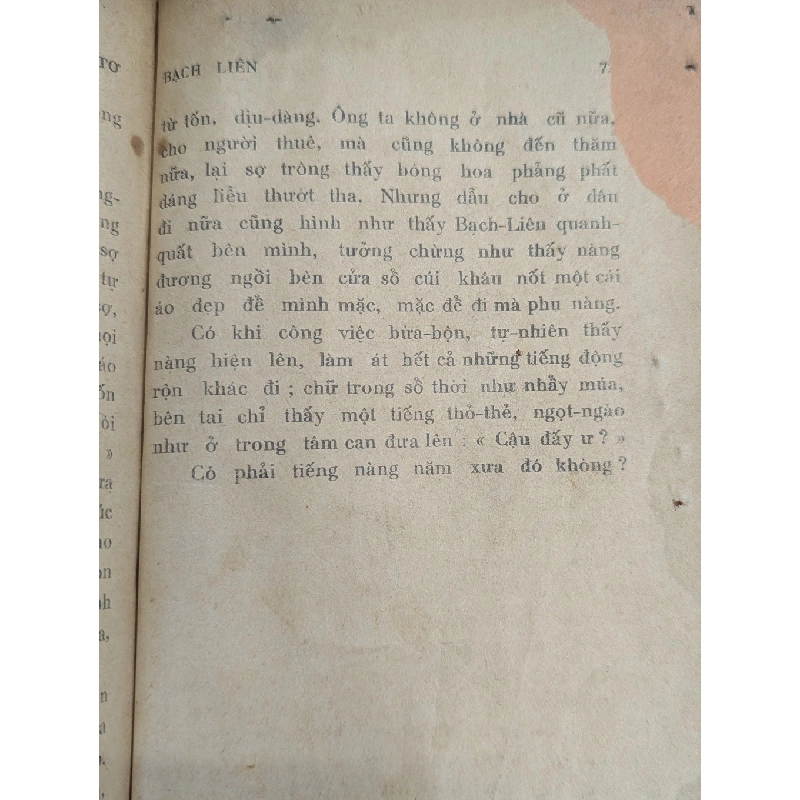 BẠCH LIÊN 7
từ tốn, dịu-dàng. Ông ta không ở nhà cũ nữa,
cho người thuê, mà cũng không đến thăm
nữa, lại sợ trông thấy bóng hoa phảng phất
dáng liễu thướt tha. Nhưng dẫu cho ở đâu
đi nữa cũng hình như thấy Bạch-Liên quanh-
quất bên mình, tưởng chừng như thấy nàng
đương ngồi bên cửa sổ cúi khâu nốt một cái
áo đẹp để mình mặc, mặc để đi mà phụ nàng.
Có khi công việc bừa-bộn, tự-nhiên thấy
nàng hiện lên, làm át hết cả những tiếng động
rộn khác đi ; chữ trong sổ thời như nhẩy múa,
bên tai chỉ thấy một tiếng thỏ-thẻ, ngọt-ngào
như ở trong tâm can đưa lên : « Cậu đấy ư ? »
Có phải tiếng nàng năm xưa đó không ?